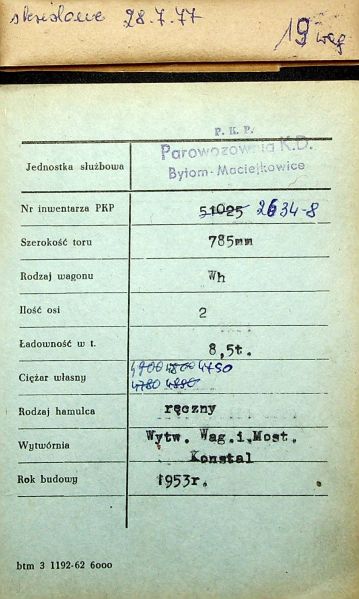 skreślone 28.7.77
19 wag
P. K. P.
Jednostka służbowa
Parowozownia K.D.
Bytom-Maciejkowice
Nr inwentarza PKP 51025 2634-8
Szerokość toru 785mm
Rodzaj wagonu Wh
Ilość osi 2
Ładowność w t. 8,5t.
Ciężar własny 4900 4800 4750
4780 4880
Rodzaj hamulca ręczny
Wytwórnia Wytw. Wag.i.Most.
Konstal
Rok budowy 1953r.
btm 3 1192-62 6000